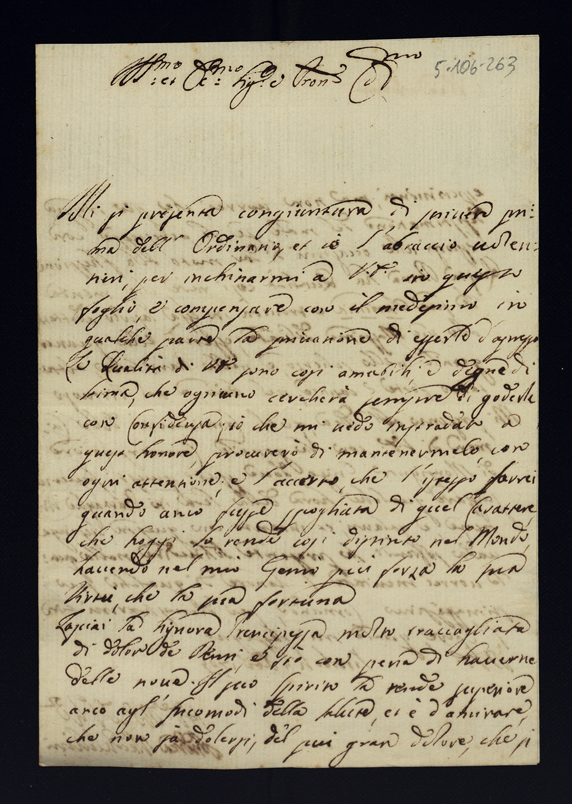 5-106-263
Mi si presenta congiuntura di scriver pri:
ma dell' Ordinario, et io l'abraccio volen:
tieri, per inchinarmi à V.ª in questo
foglio, e compensare con il medesimo in
qualche parte la privatione di esserle d'appresso
Le Qualità di V.ª sono cosi amabili, e degne di
stima, che ogniuno cercherà sempre di goderle
con io che mi vedo à
quest' honore, procurerò di mantenermelo, con
ogni attentione, e l'accerto, che l'istesso farei
quando anco fosse spogliata di quel Carattere
che hoggi la rende cosi nel Mondo,
havendo nel mio Genio più forza la sua
Virtù, che la sua fortuna
Lasciai la Signora Prencipessa molto travagliata
di dolor de Denti e stò con pena di haverne
delle nove. Il suo spirito la rende superiore
anco agl' incomodi della salute, et è d'amirare,
che non sa dolersi, del più gran dolore, che si